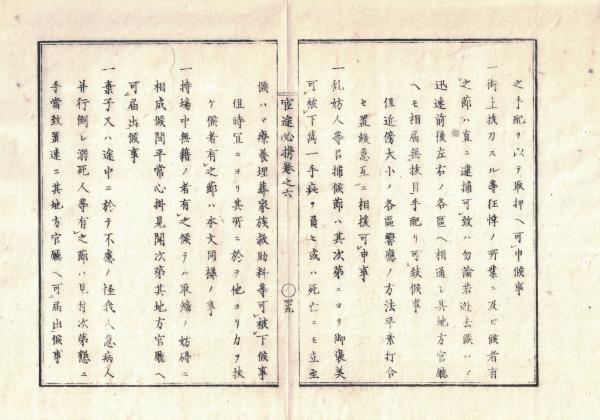 之手配ヲ以テ取押ヘ可申候事
一街上抜刀スル等狂悖ノ所業ニ及ヒ候者有
之節ハ直ニ逮捕可致ハ勿論若逃去候ハヽ
迅速前後左右ノ各區ヘ相通シ其地方官廳
ヘモ相届無抜目手配リ可致候事
但近傍大小ノ各區響應ノ方法平素打合
セ置緩急互ニ相援可申事
一乱妨人等召捕候節ハ其次第ニヨリ御褒美
可被下萬一手疵ヲ負ヒ或ハ死亡ニモ立至
官途必携巻之六
四九
候ハヽ療養埋葬家族救助料等可被下候事
但時宜ニヨリ其所ニ於テ他ヨリ力ヲ扶
ケ候者有之節ハ本文同様ノ事
一持場中無籍ノ者有之候テハ取締ノ妨碍ニ
相成候間平常心掛見聞次第其地方官廳ヘ
可届出候事
一棄子又ハ途中ニ於テ不慮ノ怪我人急病人
并行倒レ溺死人等有之節ハ見付次第懇ニ
手當致置速ニ其地方官廳ヘ可届出候事